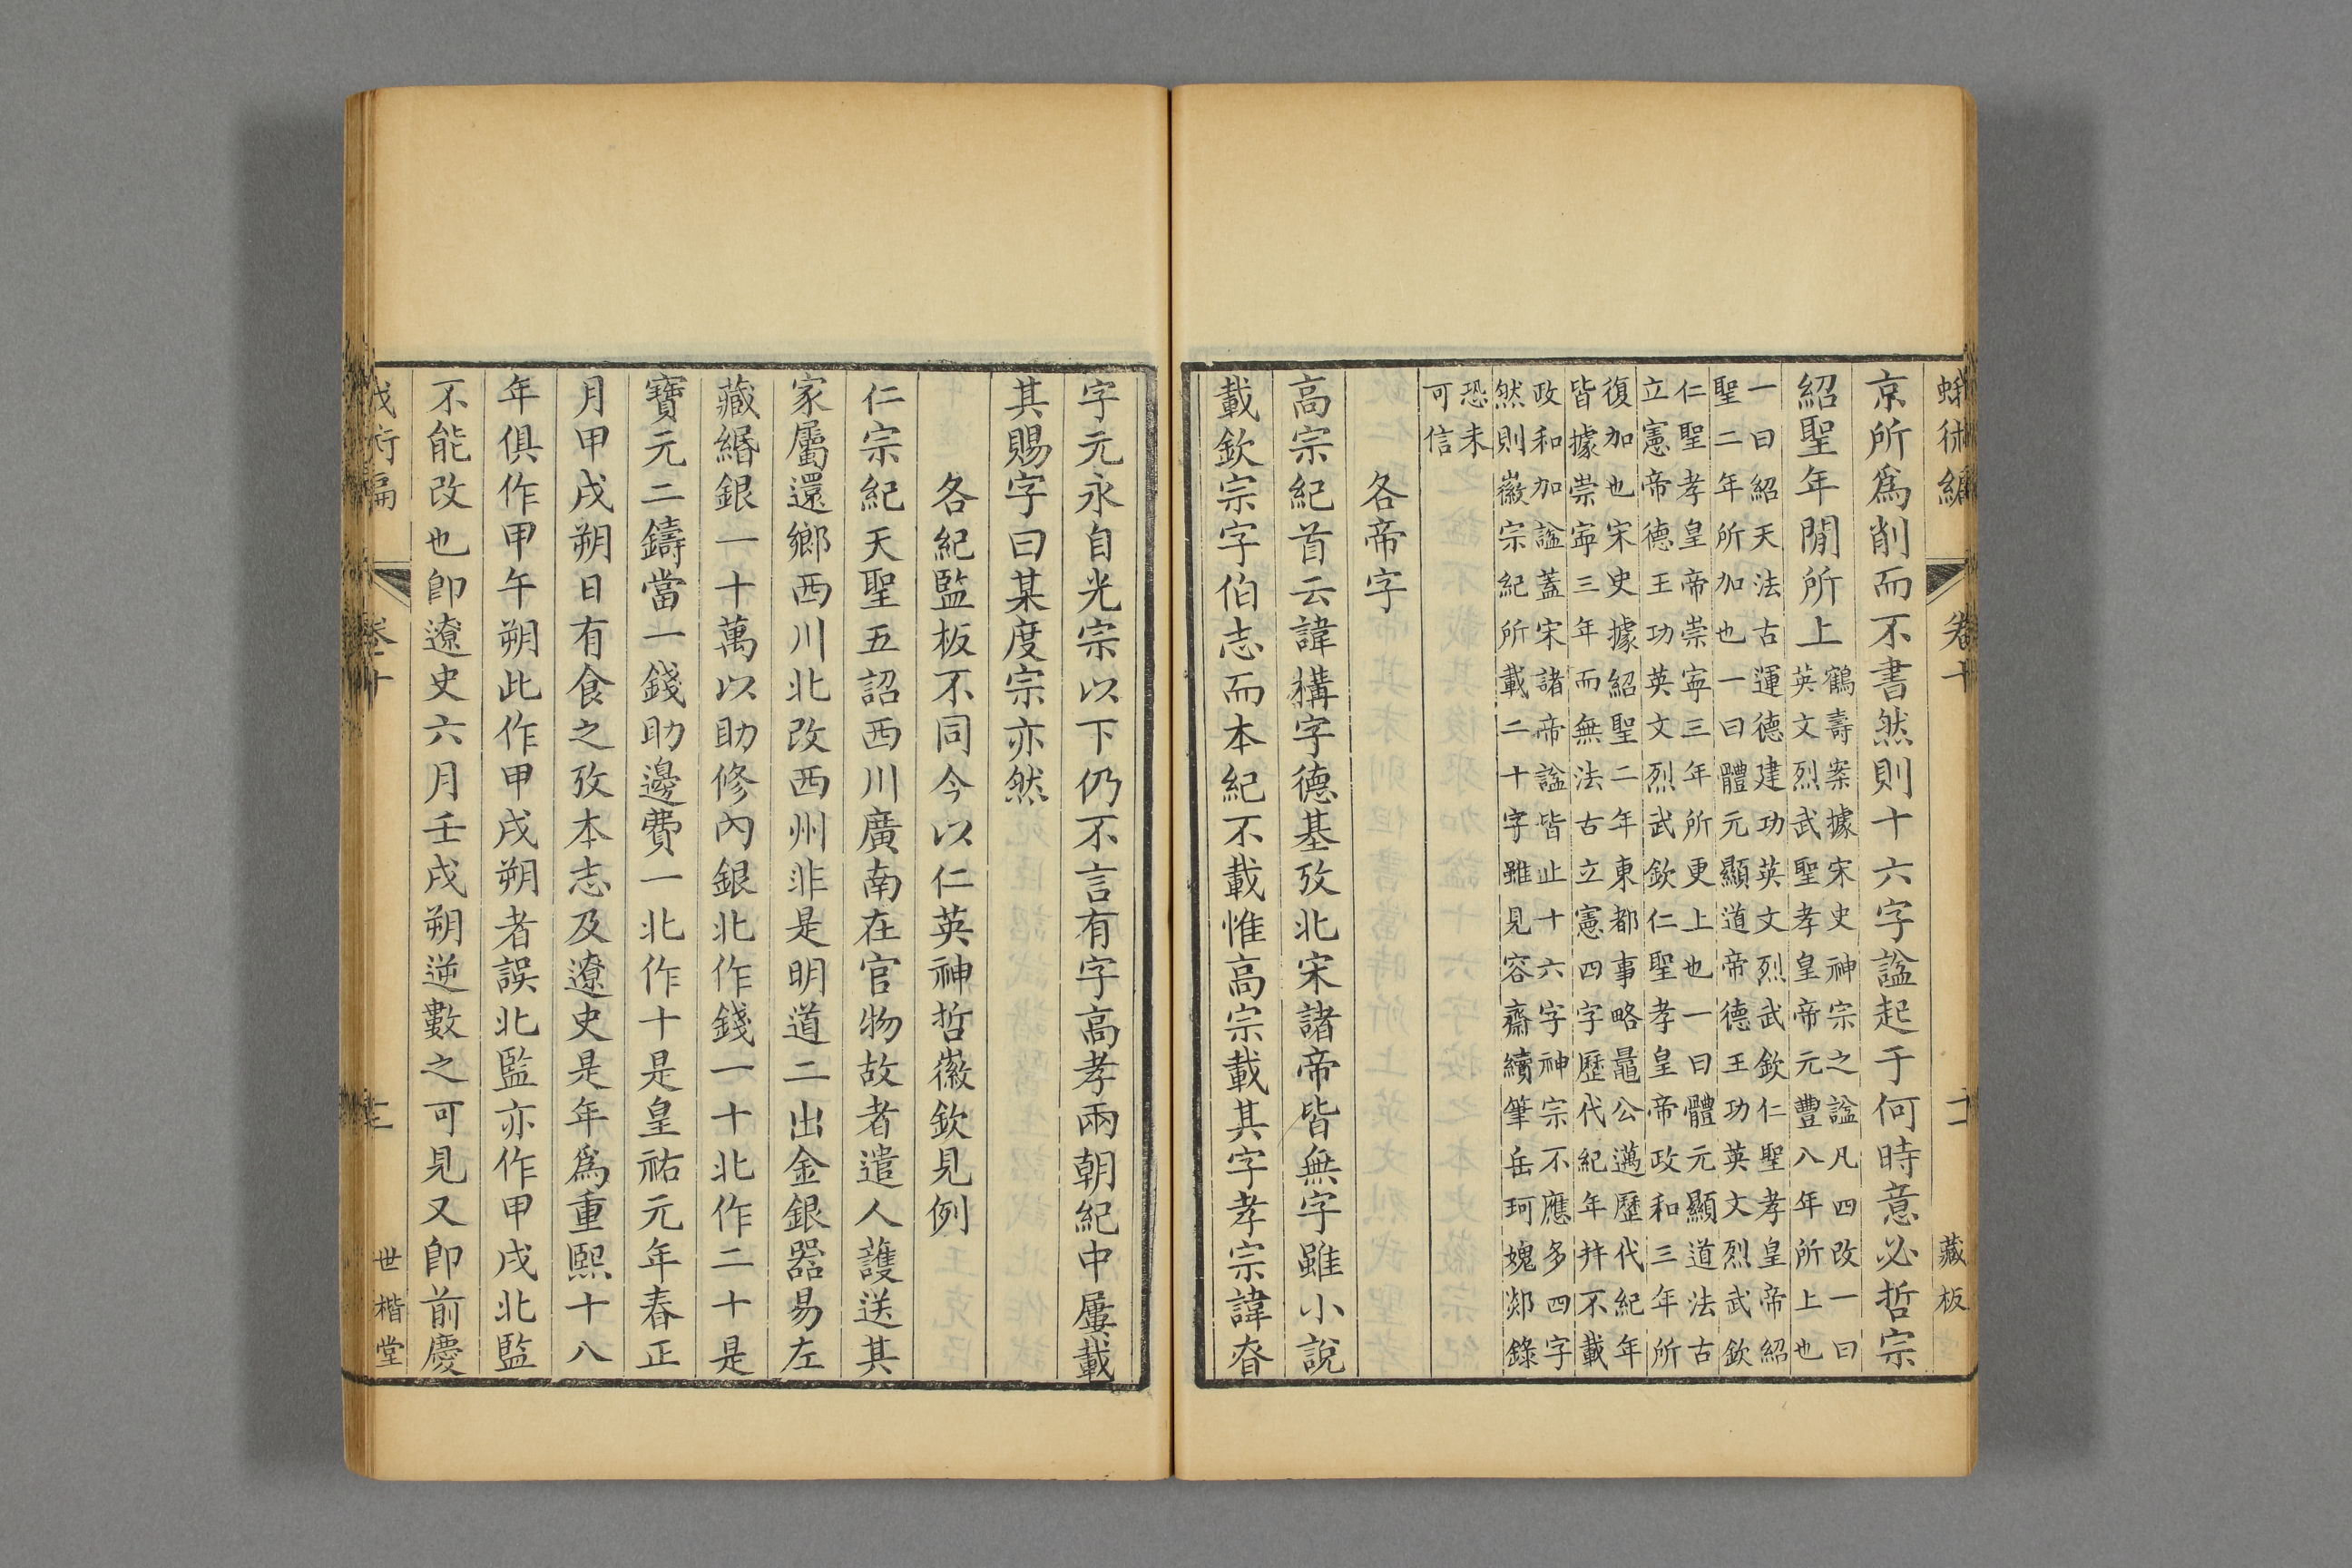 蛾術編 卷十 十二 藏板
京所爲削而不書然則十六字諡起于何時意必哲宗
紹聖年閒所上
鶴壽案據宋史神宗之諡凡四改一曰
英文烈武聖孝皇帝元豐八年所上也
一曰紹天法古運德建功英文烈武欽仁聖孝皇帝紹
聖二年所加也一曰體元顯道帝德王功英文烈武欽
仁聖孝皇帝崇寧三年所更上也一曰體元顯道法古
立憲帝德王功英文烈武欽仁聖孝皇帝政和三年所
復加也宋史據紹聖二年東都事略鼂公邁歷代紀年
皆據崇寧三年而無法古立憲四字歷代紀年幷不載
政和加諡蓋宋諸帝諡皆止十六字神宗不應多四字
然則徽宗紀所載二十字雖見容齋續筆岳珂媿郯錄
恐未
可信
各帝字
高宗紀首云諱構字德基攷北宋諸帝皆無字雖小說
載欽宗字伯志而本紀不載惟高宗載其字孝宗諱眘
字元永自光宗以下仍不言有字高孝兩朝紀中屢載
其賜字曰某度宗亦然
各紀監板不同今以仁英神哲徽欽見例
仁宗紀天聖五詔西川廣南在官物故者遣人護送其
家屬還鄉西川北改西州非是明道二出金銀器易左
藏緡銀一十萬以助修內銀北作錢一十北作二十是
寶元二鑄當一錢助邊費一北作十是皇祐元年春正
月甲戌朔日有食之攷本志及遼史是年爲重熙十八
年俱作甲午朔此作甲戌朔者誤北監亦作甲戌北監
不能改也卽遼史六月壬戌朔逆數之可見又卽前慶
卷十 世楷堂